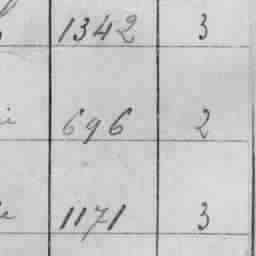 1342 3
696 2
1171 3